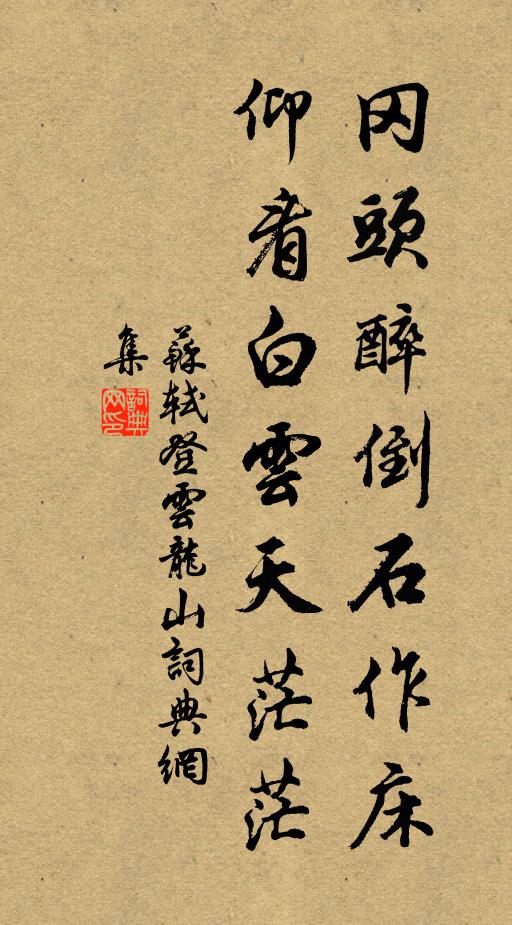 冈頭醉倒石作床
仰看白雲天茫茫
蘇軾登雲龍山詞典網
集
詞典
网印